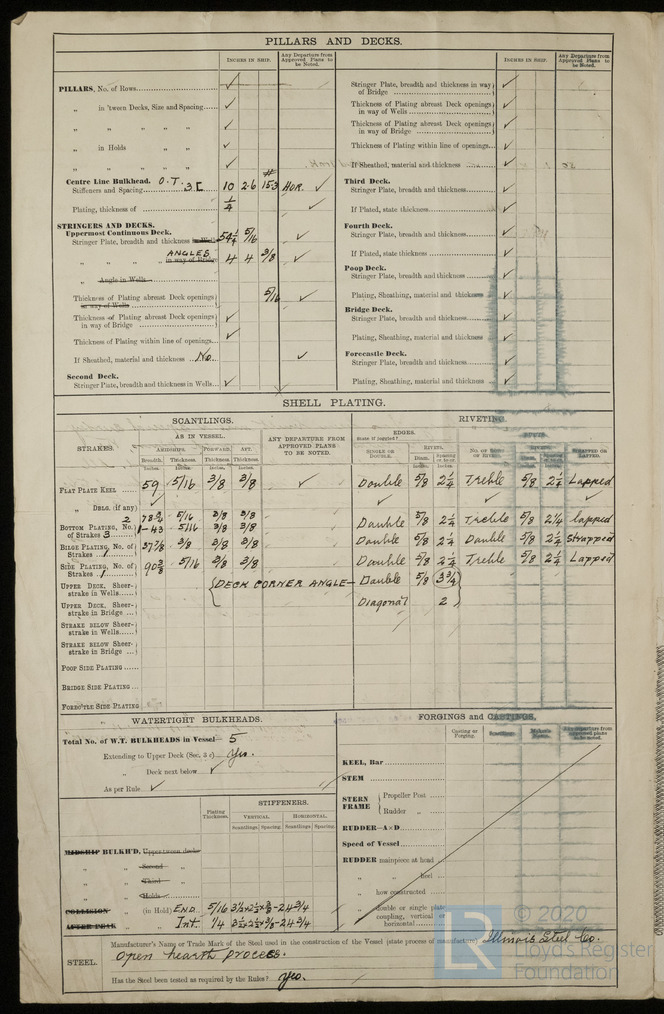 PILLARS AND DECKS.
INCHES IN SHIP.
Any Departure from Approved Plans to be Noted.
INCHES IN SHIP.
Any Departure from Approved Plans to be Noted.
PILLARS, No. of Rows ✓
„ in 'tween Decks, Size and Spacing ✓
„ „ „ „ „ ✓
„ in Holds „ „ ✓
„ „ „ „ ✓
Centre Line Bulkhead. O.T.
Stiffeners and Spacing 3 [ 10 2.6 15.3 # HOR. ✓
Plating, thickness of 1/4 ✓
STRINGERS AND DECKS.
Uppermost Continuous Deck.
Stringer Plate, breadth and thickness in Wells 54 1/4 5/16 ✓
„ „ „ „ ANGLES in way of Bridge 4 4 3/8 ✓
„ Angle in Wells
Thickness of Plating abreast Deck openings in way of Wells 5/16 ✓
Thickness of Plating abreast Deck openings in way of Bridge ✓
Thickness of Plating within line of openings ✓
If Sheathed, material and thickness No. ✓
Second Deck.
Stringer Plate, breadth and thickness in Wells ✓
Stringer Plate, breadth and thickness in way of Bridge ✓
Thickness of Plating abreast Deck openings in way of Wells ✓
Thickness of Plating abreast Deck openings in way of Bridge ✓
Thickness of Plating within line of openings ✓
If Sheathed, material and thickness ✓
Third Deck.
Stringer Plate, breadth and thickness ✓
If Plated, state thickness ✓
Fourth Deck.
Stringer Plate, breadth and thickness ✓
If Plated, state thickness ✓
Poop Deck.
Stringer Plate, breadth and thickness ✓
Plating, Sheathing, material and thickness ✓
Bridge Deck.
Stringer Plate, breadth and thickness ✓
Plating, Sheathing, material and thickness ✓
Forecastle Deck.
Stringer Plate, breadth and thickness ✓
Plating, Sheathing, material and thickness ✓
SHELL PLATING.
SCANTLINGS.
RIVETING.
STRAKES.
AS IN VESSEL.
ANY DEPARTURE FROM APPROVED PLANS TO BE NOTED.
EDGES.
State if joggled?
BUTTS.
AMIDSHIPS.
FORWARD.
AFT.
SINGLE OR DOUBLE.
RIVETS.
No. OF ROWS OF RIVETS.
RIVETS.
STRAPPED OR LAPPED.
Breadth. Thickness. Thickness. Thickness.
Diam. Spacing cr. to cr.
Diam. Spacing cr. to cr.
Inches. Inches. Inches. Inches. Inches. Inches.
FLAT PLATE KEEL 59 5/16 3/8 3/8 ✓ Double 5/8 2 1/4 Treble 5/8 2 1/4 Lapped
„ DBLG. (if any) ✓ ✓ ✓ ✓
BOTTOM PLATING, No. of Strakes 3 2 78 3/4 5/16 3/8 3/8 Double 5/8 2 1/4 Treble 5/8 2 1/4 lapped
1-43 5/16 3/8 3/8
BILGE PLATING, No. of Strakes 1 37 7/8 3/8 3/8 3/8 Double 5/8 2 1/4 Double 5/8 2 1/4 Strapped
SIDE PLATING, No. of Strakes 1 90 3/8 5/16 3/8 3/8 Double 5/8 2 1/4 Treble 5/8 2 1/4 Lapped
UPPER DECK, Sheerstrake in Wells DECK CORNER ANGLE— Double 5/8 3 3/4
UPPER DECK, Sheerstrake in Bridge Diagonal 2
STRAKE BELOW SHEERstrake in Wells
STRAKE BELOW SHEERstrake in Bridge
POOP SIDE PLATING
BRIDGE SIDE PLATING
FORECTLE SIDE PLATING
WATERTIGHT BULKHEADS.
Total No. of W.T. BULKHEADS in Vessel— 5
Extending to Upper Deck (Sec. 3 c) Yes.
„ Deck next below ✓
As per Rule ✓
Plating Thickness.
STIFFENERS.
VERTICAL.
HORIZONTAL.
Scantlings. Spacing. Scantlings. Spacing.
MIDSHIP BULKH'D, Upper tween decks
„ „ Second „
„ „ Third „
„ „ Holds
COLLISION „ (in Hold) END. 5/16 3 1/2 x 2 1/2 x 3/8 - 24 3/4
AFTER PEAK „ „ Int. 1/4 3 1/2 x 2 1/2 x 3/8 - 24 3/4
FORGINGS and CASTINGS.
Casting or Forging.
Scantlings.
Maker's Name.
Any departure from approved plans to be noted.
KEEL, Bar
STEM
STERN FRAME Propeller Post
Rudder „
RUDDER—A×D
Speed of Vessel
RUDDER mainpiece at head
„ „ heel
„ how constructed
„ double or single plate
coupling, vertical or horizontal
STEEL.
Manufacturer's Name or Trade Mark of the Steel used in the construction of the Vessel (state process of manufacture) Illinois Steel Co.
Open hearth process.
Has the Steel been tested as required by the Rules? Yes.
LR
© 2020
Lloyd's Register
Foundation